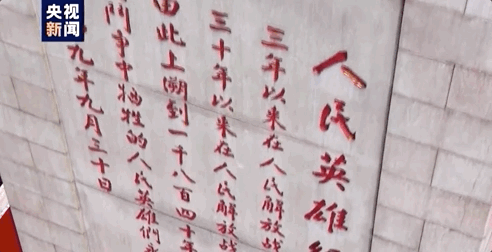 央视
新闻
人民英雄
三年以来在人民解放战
三十年以来在人民解放战
由此上溯到一千八百四十年
鬥争中牺牲的人民英雄們
九年九月三十日